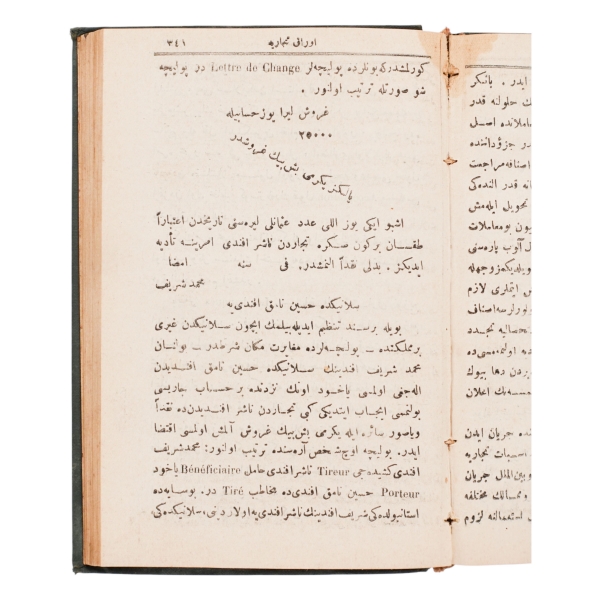 اوراق تجاریه
٣٤١
كورلمشدركه بونلرده پولیچه‌لر Lettre de Change در پولیچه
شو صورتله ترتیب اولنور .
غروش لیرا یوز حسابیله
٢٥٠٠٠
یالكز یكرمی بش بیك غروشدر
اشبو ایكی یوز اللی عدد عثمانلی لیره‌سنی تاریخدن اعتباراً
طقسان بركون سكره تجاردن ناشر افندی امرینه تأدیه
ایدیكز . بدلی نقداً آلنمشدر . فی سنه امضا
محمد شریف
سلانیكده حسین نامق افندی‌یه
بویله برسند تنظیم ایدیله‌بیلمك ایچون سلانیكدن غیری
برمملكتده – پولیچه‌لرده مغایرت مكان شرطدر – بولنان
محمد شریف افندینك سلانیكده حسین نامق افندیدن
اله‌جغی اولمسی یاخود اونك نزدنده بر حساب جاریسی
بولنمسی ایجاب ایتدیكی كبی تجاردن ناشر افندیدن‌ده نقداً
ویاصور سائره ایله یكرمی بش بیك غروش آلمش اولمسی اقتضا
ایدر . پولیچه اوچ شخص آره‌سنده ترتیب اولنور : محمد شریف
افندی كشیده‌جی Tireur ناشر افندی حامل Bénéficiaire یاخود
Porteur حسین نامق افندی‌ده مخاطب Tiré در . بوسایه‌ده
استانبولده‌كی شریف افندینك ناشر افندی‌یه اولان دینی ، سلانیكده‌كی
ایدر . یالكز
ك حلولنه قدر
معاملاتده اصل
در جزؤداننده
اصنافه مراجعت
انه قدر النده‌كی
تحویل ایله‌مش
یون بومعاملات
ل آلوب پاره‌سنی
ویلدیكز وجهله
ش ایتملری لازم
ولورلرسه اصناف
تحصالیه تجدد
ده اولتمه‌سی‌ده
بردن دها بیوك
سسه‌نك اعلان
نده جریان ایدن
سبات تجاریه
وبین الملل جریان
وممالك مختلفه
استعمالنه لزوم